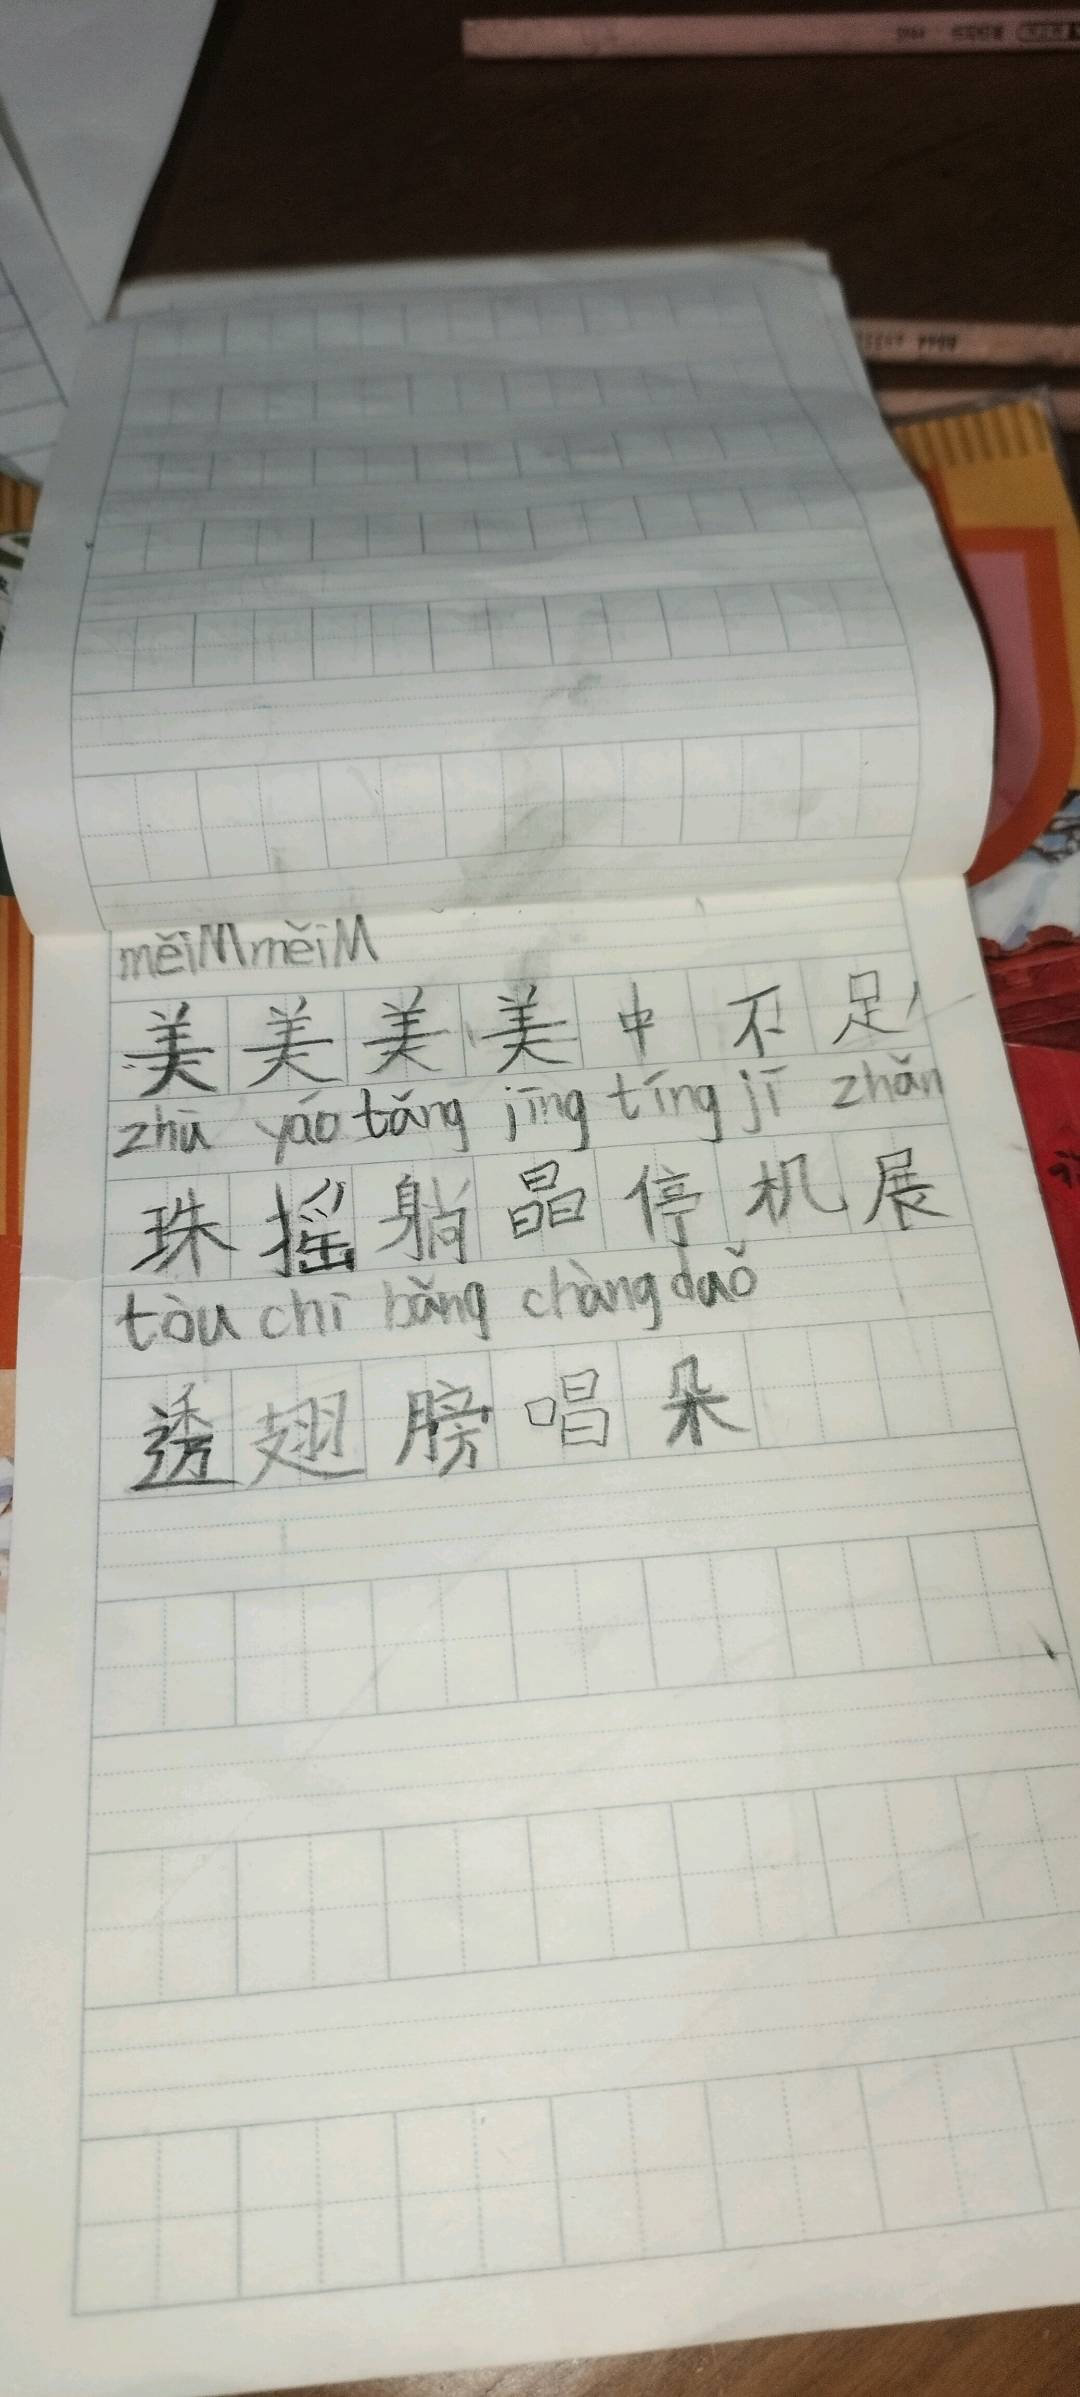 měiMměiM
美美美美中不足
zhū yáo tǎng jīng tíng jī zhǎn
珠摇躺晶停机展
tòu chī bǎng chàng duǒ
透翅膀唱朵